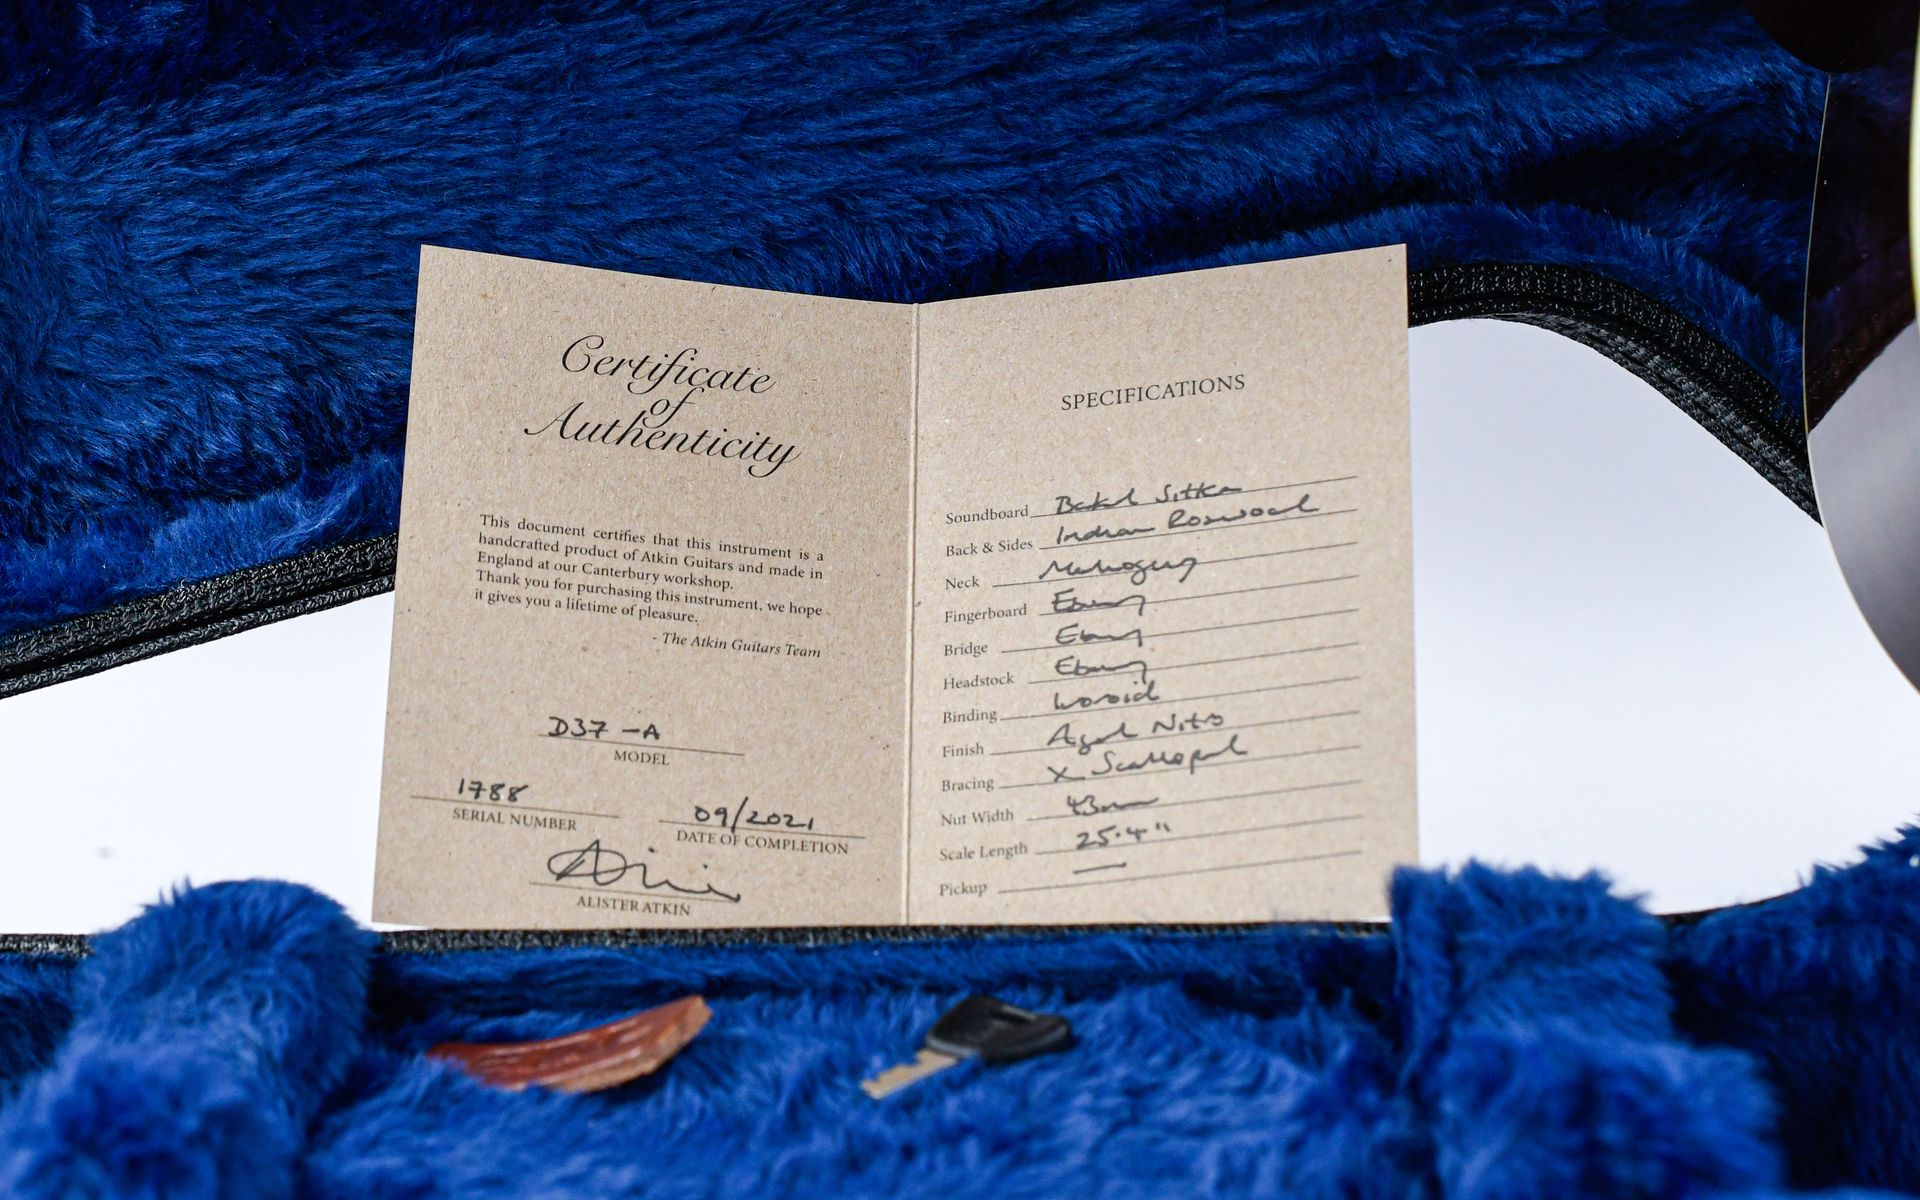 Certificate
of
Authenticity
This document certifies that this instrument is a
handcrafted product of Atkin Guitars and made in
England at our Canterbury workshop.
Thank you for purchasing this instrument, we hope
it gives you a lifetime of pleasure.
- The Atkin Guitars Team
D37-A
MODEL
1788
SERIAL NUMBER
09/2021
DATE OF COMPLETION
ALISTER ATKIN
SPECIFICATIONS
Soundboard Baked Sitka
Back & Sides Indian Rosewood
Neck Mahogany
Fingerboard Ebony
Bridge Ebony
Headstock Ebony
Binding Ivoroid
Finish Aged Nitro
Bracing X Scalloped
Nut Width 43mm
Scale Length 25.4"
Pickup —